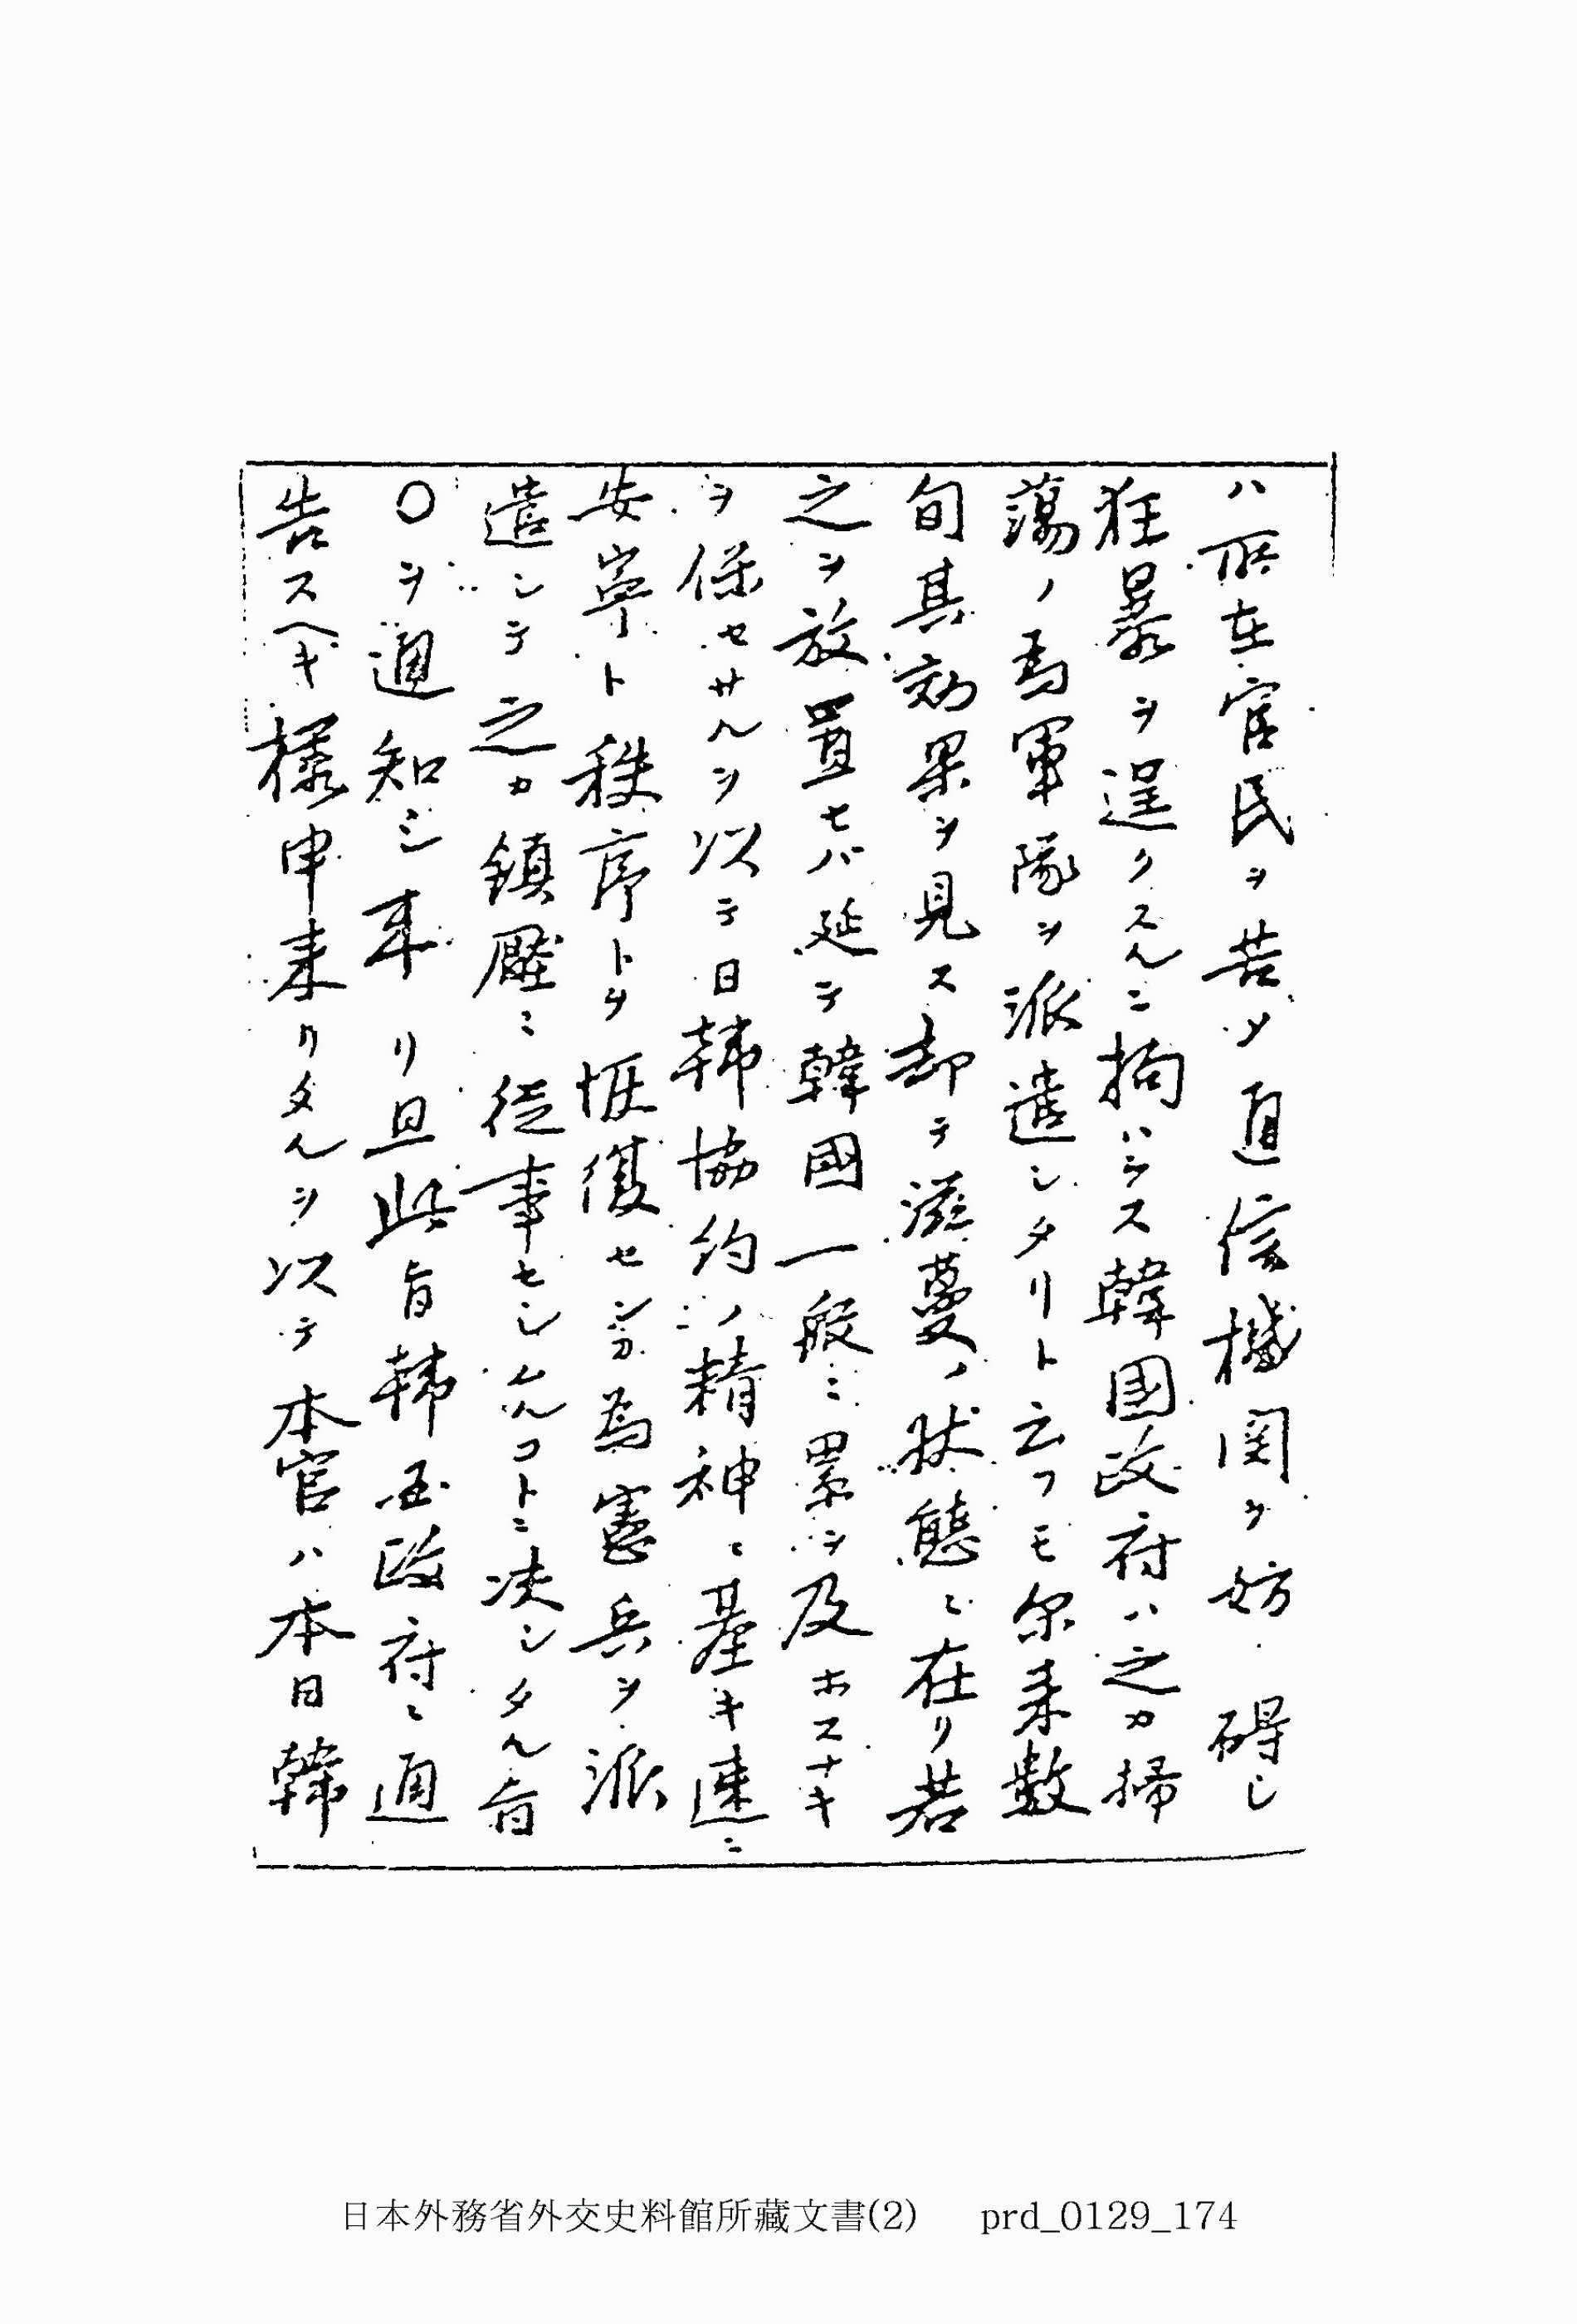 ハ所在官民ヲ苦メ通信機関ヲ妨碍し
狂暴ヲ逞クスルニ拘ハラス韓國政府ハ之カ掃
蕩ノ為軍隊ヲ派遣シタリト云フモ尓来数
旬其効果ヲ見ス却テ滋蔓ノ状態ニ在リ若
之ヲ放置セバ延テ韓國一般ニ累ヲ及ホスナキ
ヲ保セサルヲ以テ日韓協約ノ精神ニ基キ速ニ
安寧ト秩序トヲ恢復センカ為憲兵ヲ派
遣シテ之カ鎮壓ニ従事セシムルコトニ决シタル旨
〇ヲ通知シ来リ且此旨韓国政府ニ通
告スヘキ様申来リタルヲ以テ本官ハ本日韓
日本外務省外交史料館所藏文書(2) prd_0129_174